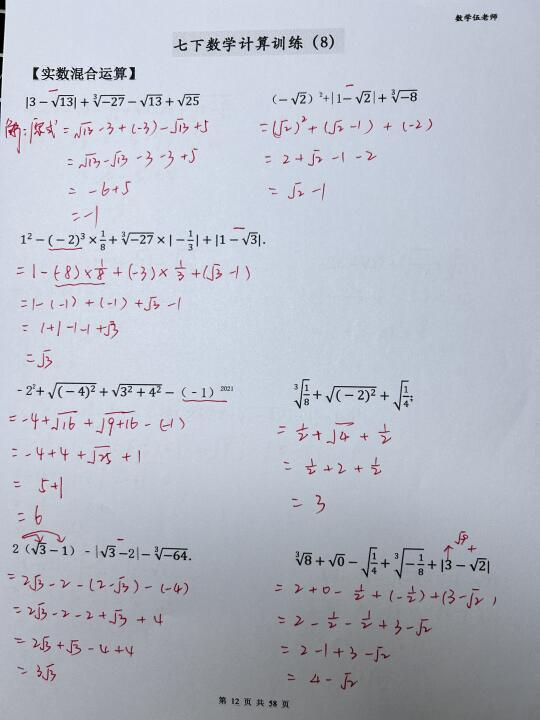 数学伍老师
七下数学计算训练（8）
【实数混合运算】
|3 − √13| + ∛−27 − √13 + √25
解：原式 = √13 − 3 + (−3) − √13 + 5
= √13 − √13 − 3 − 3 + 5
= −6 + 5
= −1
（−√2）² + |1 − √2| + ∛−8
= (√2)² + (√2 − 1) + (−2)
= 2 + √2 − 1 − 2
= √2 − 1
1² − (−2)³ × 1/8 + ∛−27 × |−1/3| + |1 − √3|.
= 1 − (−8) × 1/8 + (−3) × 1/3 + (√3 − 1)
= 1 − (−1) + (−1) + √3 − 1
= 1 + 1 − 1 − 1 + √3
= √3
- 2² + √(−4)² + √3² + 4² − (−1)²⁰²¹
= −4 + √16 + √9+16 − (−1)
= −4 + 4 + √25 + 1
= 5 + 1
= 6
∛1/8 + √(−2)² + √1/4;
= 1/2 + √4 + 1/2
= 1/2 + 2 + 1/2
= 3
2（√3 − 1）- |√3 − 2| − ∛−64.
= 2√3 − 2 − (2 − √3) − (−4)
= 2√3 − 2 − 2 + √3 + 4
= 2√3 + √3 − 4 + 4
= 3√3
√9 +
∛8 + √0 − √1/4 + ∛−1/8 + |3 − √2|
= 2 + 0 − 1/2 + (−1/2) + (3 − √2)
= 2 − 1/2 − 1/2 + 3 − √2
= 2 − 1 + 3 − √2
= 4 − √2
第 12 页 共 58 页